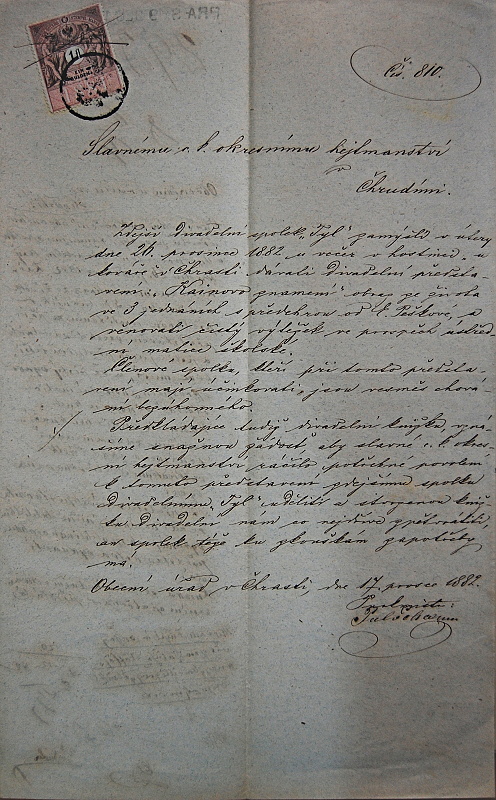 Čís. 810.
Slavnému c. k. okresnímu hejtmanství
v
Chrudimi.
Zdejší divadelní spolek „Tyl“ zamýšlí v úterý
dne 26. prosince 1882 u večer v hostinci „u
kováře“ v Chrasti dávati divadelní představe-
vení: „Kainovo znamení“ obraz ze života
ve 3 jednáních s předehrou od F. Piškove, a
věnovati čistý výtěžek ve prospěch ústřed
ní matice školské.
Členové spolku, kteří při tomto předsta-
vení mají účinkovati, jsou vesměs chová-
ní bezúhonného.
Předkládajíce tudíž divadelní knížku, vzná-
šíme snažnou žádost, aby slavné c. k. okres
ní hejtmanství ráčilo potřebné povolení
k tomuto představení zdejšímu spolku
divadelnímu „Tyl“ uděliti a strojenou kníž
ku divadelní nám co nejdříve zpět vrátiti,
an spolek téže ku zkouškám zapotřebí
má.
Obecní úřad v Chrasti, dne 17. prosce 1882.